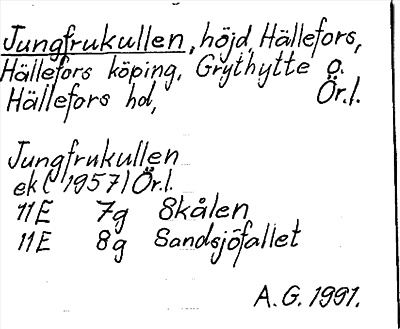 Jungfrukullen, höjd, Hällefors,
Hällefors köping, Grythytte o.
Hällefors hd, Ör.l.
Jungfrukullen
ek (1957) Ör.l.
11E 7g Skålen
11E 8g Sandsjöfallet
A.G. 1991.